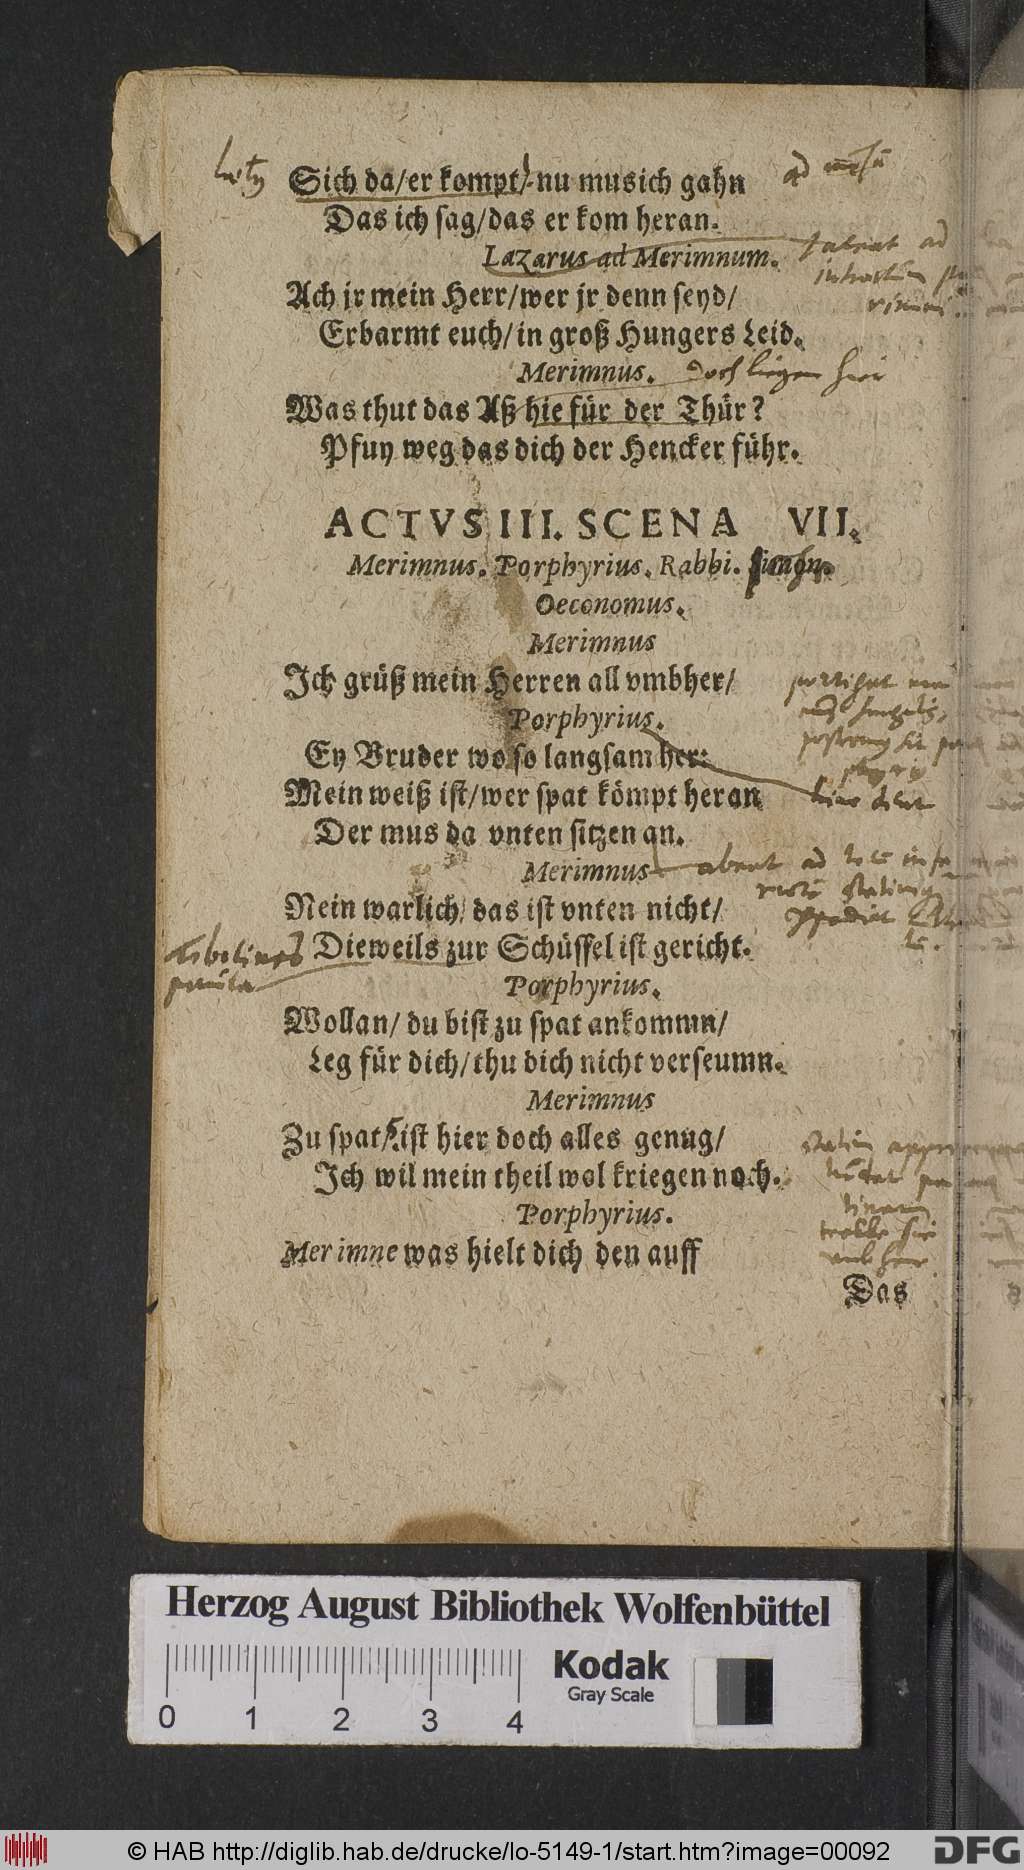 Sich da/er kompt/nu mus ich gahn
Das ich sag/das er kom heran.
Lazarus ad Merimnum.
Ach jr mein Herr/wer jr denn seyd/
Erbarmt euch/in groß Hungers Leid.
Merimnus. doch liegen hier
Was thut das Aß hie für der Thür?
Pfuy weg das dich der Hencker führ.
ACTVS III. SCENA VII.
Merimnus. Porphyrius. Rabbi. Simon.
Oeconomus.
Merimnus
Ich grüß mein Herren all vmbher/
Porphyrius.
Ey Bruder wo so langsam her:
Mein weiß ist/wer spat kömpt heran
Der mus da vnten sitzen an.
Merimnus
Nein warlich/das ist vnten nicht/
Dieweils zur Schüssel ist gericht.
Porphyrius.
Wollan/du bist zu spat ankommn/
Leg für dich/thu dich nicht verseumn.
Merimnus
Zu spat/ist hier doch alles genug/
Ich wil mein theil wol kriegen noch.
Porphyrius.
Merimne was hielt dich den auff
Das
Herzog August Bibliothek Wolfenbüttel
Kodak
Gray Scale
0 1 2 3 4
© HAB http://diglib.hab.de/drucke/lo-5149-1/start.htm?image=00092
DFG